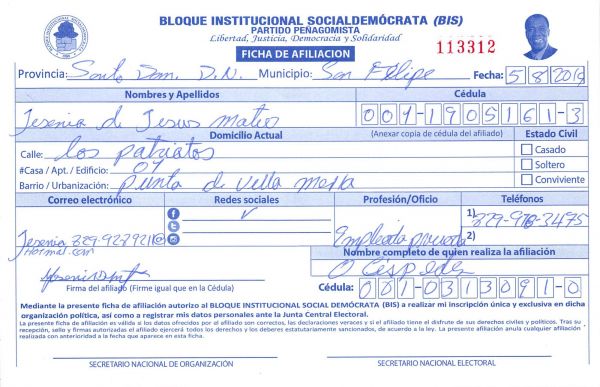 BLOQUE INSTITUCIONAL SOCIALDEMÓCRATA (BIS)
PARTIDO PEÑAGOMISTA
Libertad, Justicia, Democracia y Solidaridad
FICHA DE AFILIACION
113312
Provincia: Santo Dom. D.N. Municipio: San Felipe Fecha: 5/8/2019
Nombres y Apellidos Cédula
Jesenia d Jesus Mateo 001-1905161-3
Domicilio Actual (Anexar copia de cédula del afiliado) Estado Civil
Calle: los patriotas Casado
#Casa / Apt. / Edificio: 04 Soltero
Barrio / Urbanización: punta de villa mella Conviviente
Correo electrónico Redes sociales Profesión/Oficio Teléfonos
1) 829-978-3475
Jesenia 829-922921@ Empleada privada 2)
Hotmail.com Nombre completo de quien realiza la afiliación
O Céspedes
Firma del afiliado (Firme igual que en la Cédula) Cédula: 001-0313091-0
Mediante la presente ficha de afiliación autorizo al BLOQUE INSTITUCIONAL SOCIAL DEMÓCRATA (BIS) a realizar mi inscripción única y exclusiva en dicha
organización política, así como a registrar mis datos personales ante la Junta Central Electoral.
La presente ficha de afiliación es válida si los datos ofrecidos por el afiliado son correctos, las declaraciones veraces y si el afiliado tiene el disfrute de sus derechos civiles y políticos. Tras su
recepción, sello y firmas autorizadas el afiliado ejercerá todos los derechos y los deberes estatutariamente sancionados, de acuerdo a la ley. La presente afiliación anula cualquier afiliación
realizada con anterioridad a la fecha que aparece en esta ficha.
SECRETARIO NACIONAL DE ORGANIZACIÓN SECRETARIO NACIONAL ELECTORAL